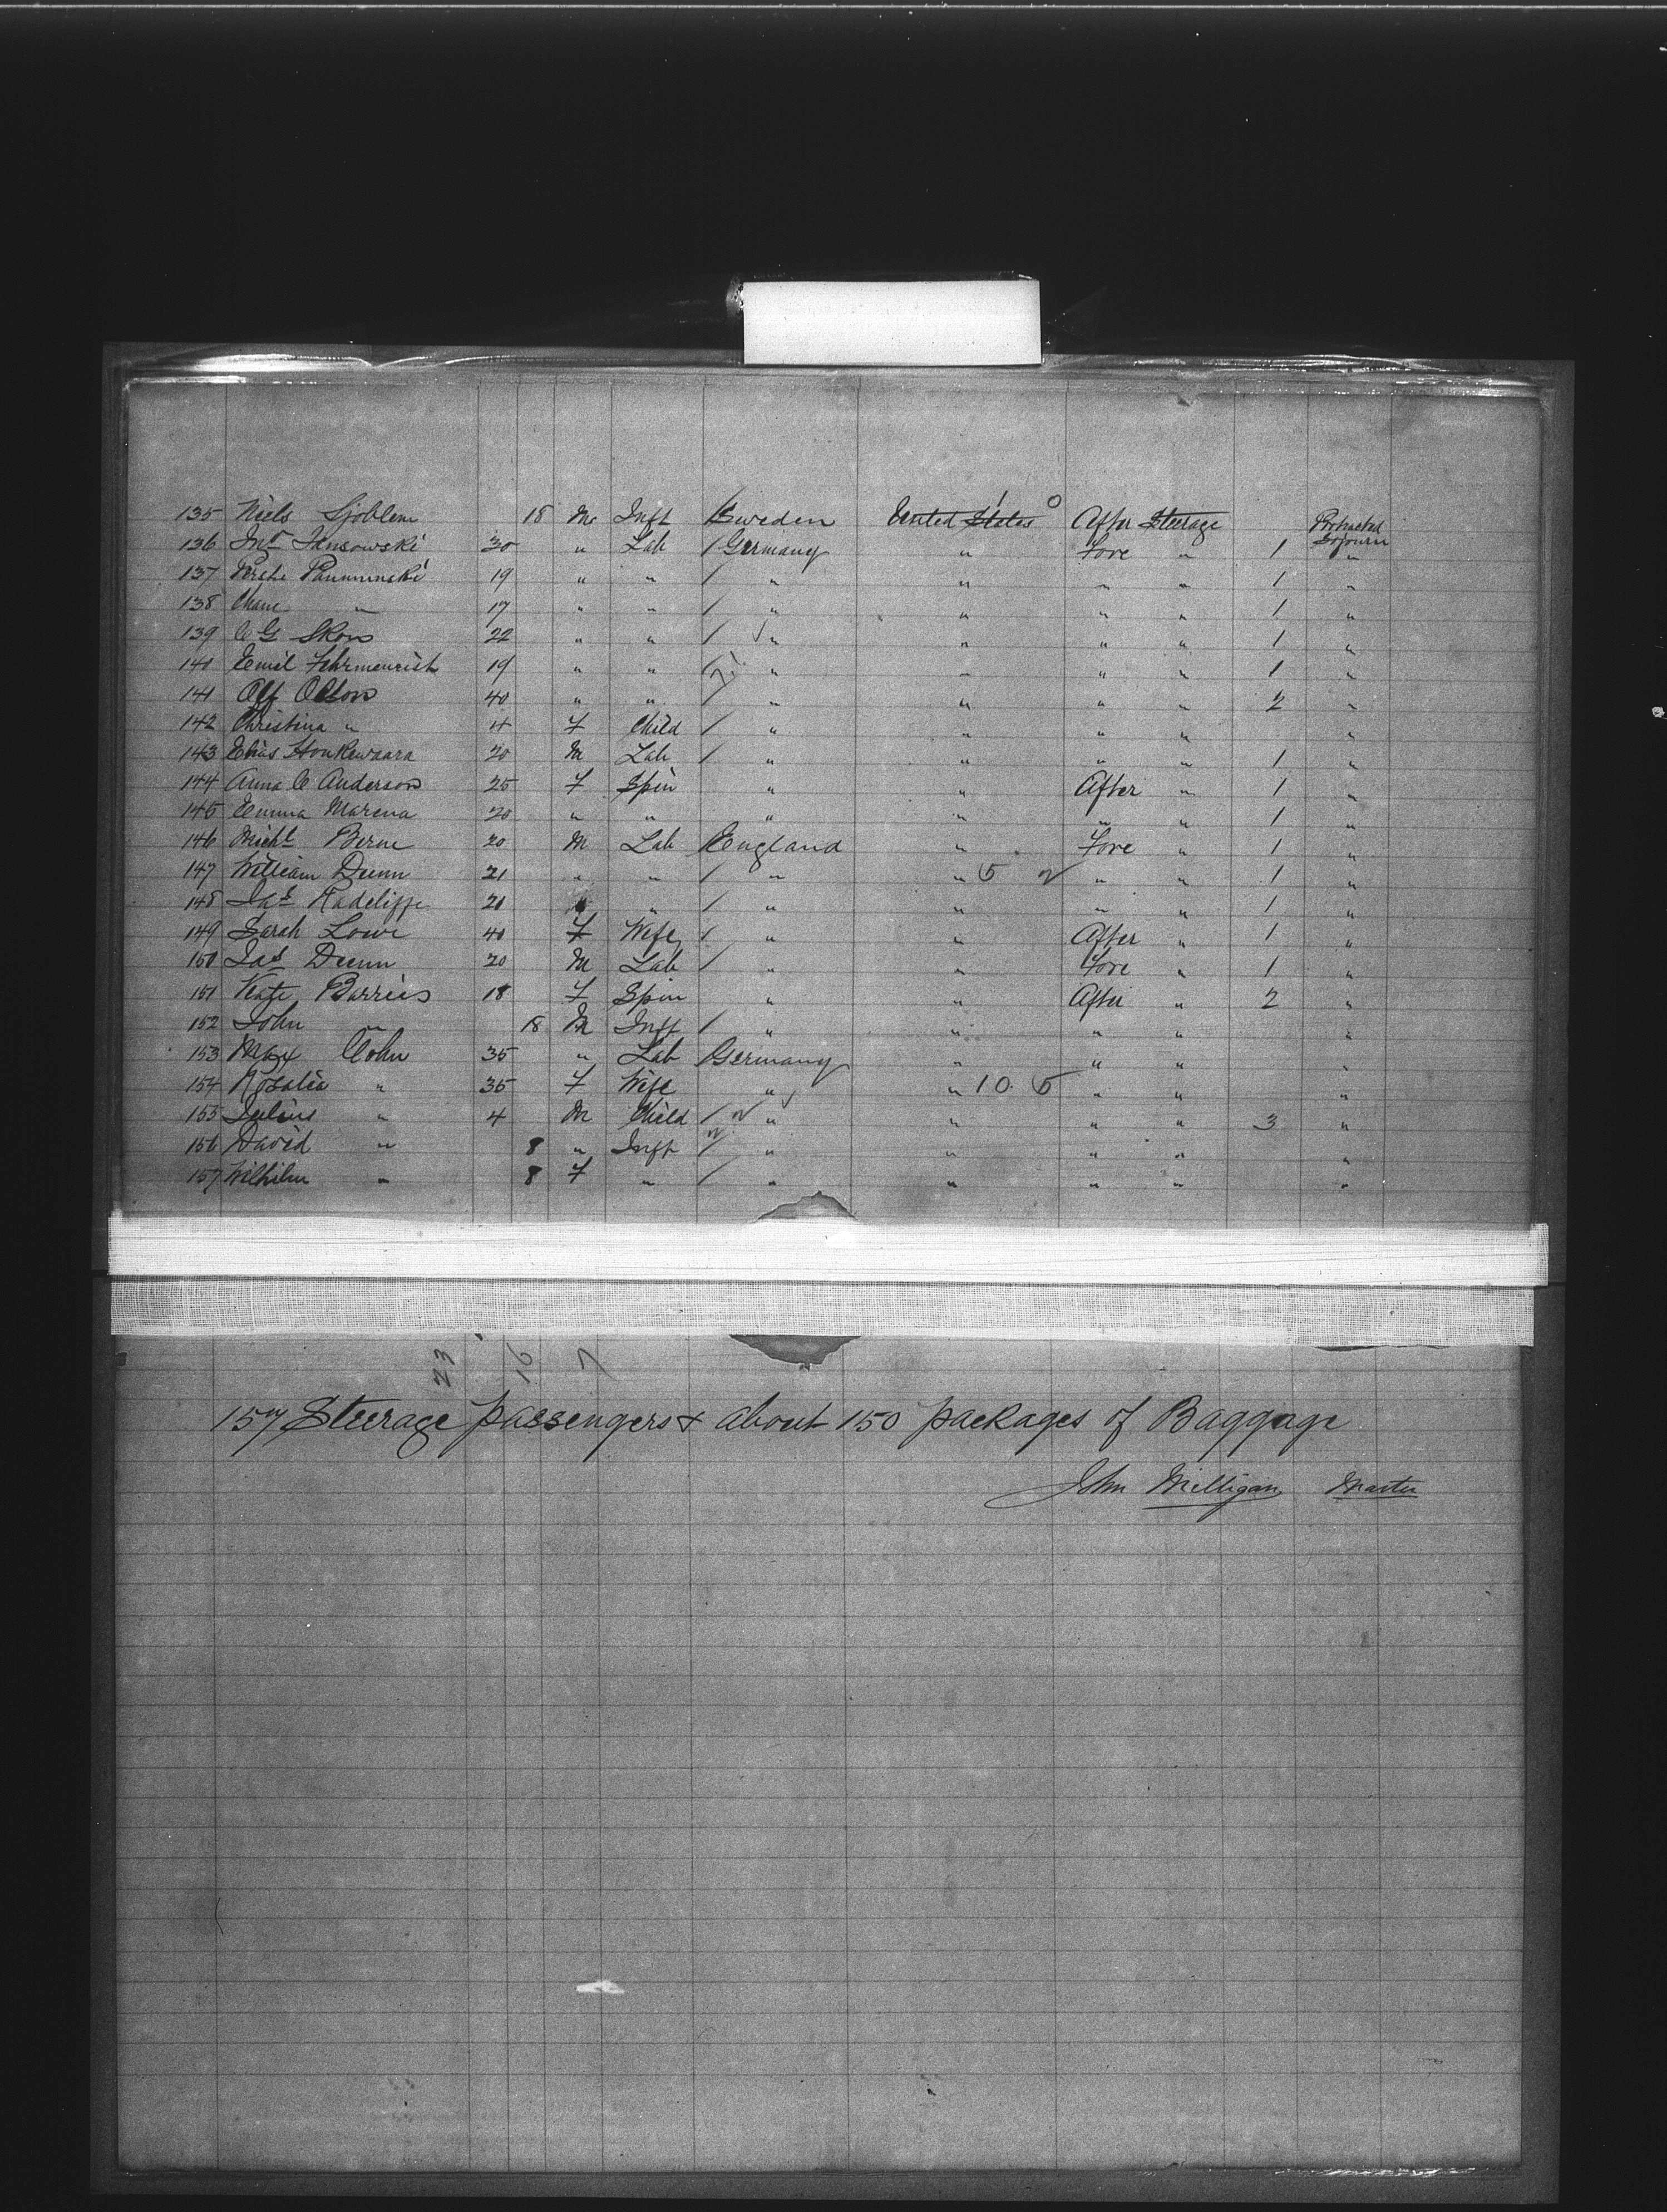 135 Niels Sjoblem 18 M Inft Sweden United States After Steerage Protracted Sojourn
136 Jno Jansowski 30 " Lab / Germany " Fore " 1 "
137 19 " " / " " " " 1 "
138 " 17 " " / " " " " 1 "
139 C G Skon 22 " " / " " " " 1 "
140 Emil 19 " " / " " " " 1 "
141 Olf 40 " " / " " " " 2 "
142 Christina " 4 F Child / " " " " "
143 Elias Honkewaara 20 M Lab / " " " " 1 "
144 Anna C Anderson 25 F Spin " " After " 1 "
145 Emma Marena 20 " " " " " " 1 "
146 Michl Birne 20 M Lab England " Fore " 1 "
147 William Dunn 21 " " / " " 5 " " 1 "
148 Jas Radcliffe 21 " / " " " " 1 "
149 Sarah Lowe 40 F Wife / " " After " 1 "
150 Jas Dunn 20 M Lab / " " Fore " 1 "
151 Kate Barries 18 F Spin " " After " 2 "
152 John " 18 M Inft / " " " " "
153 Max Cohn 35 " Lab Germany " " "
154 Rosalia " 35 F Wife " " 10. 5 " " "
155 Julius " 4 M Child / " " " " 3 "
156 David " 8 " Inft / " " " " "
157 Wilhilm " 8 F " / " " " " "
23 16 7
157 Steerage passengers & about 150 packages of Baggage
John Milligan Master